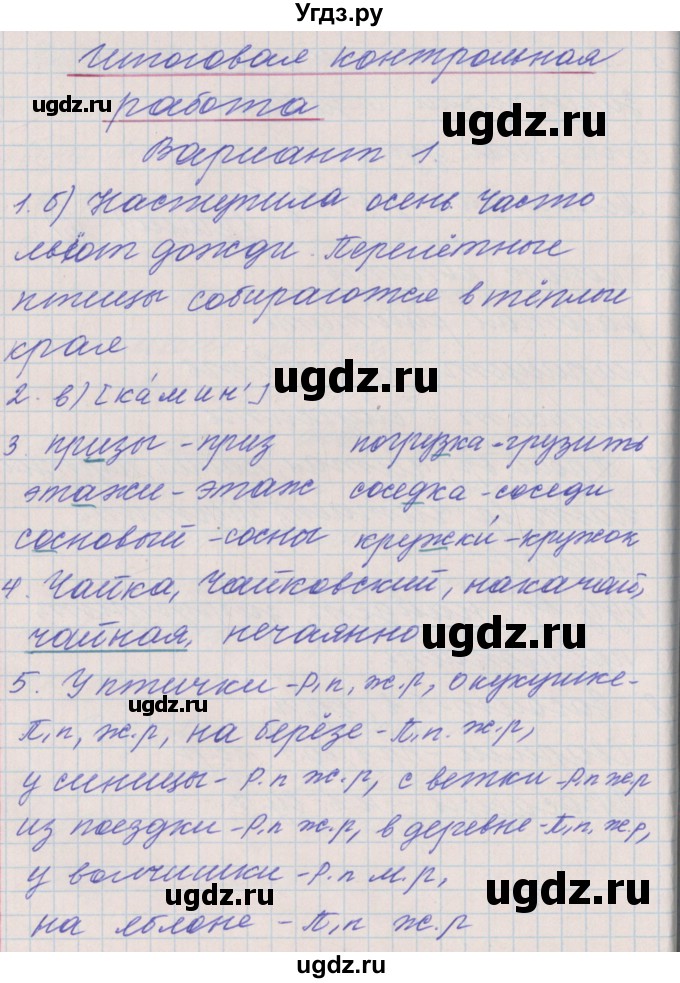 Угдз.ру
Итоговая контрольная
ugdz.ru
работа
ugdz.ru
Вариант 1.
1. б) Наступила осень. Часто
льют дожди. Перелётные
птицы собираются в тёплые
края
ugdz.ru
2. в) [ка́мин']
3. призы - приз погрузка - грузить
этажи - этаж соседка - соседи
сосновый - сосны кружки́ - кружок
4. Чайка, Чайковский, накачай,
чайная, нечаянно
ugdz.ru
5. У птички - Р.п, ж.р, о кукушке -
ugdz.ru
П.п, ж.р, на берёзе - П.п. ж.р,
у синицы - Р.п ж.р, с ветки - Р.п ж.р
из поездки - Р.п ж.р, в деревне - П.п. ж.р,
у волчишки - Р.п м.р,
ugdz.ru ugdz.ru
на яблоне - П.п ж.р
ugdz.ru